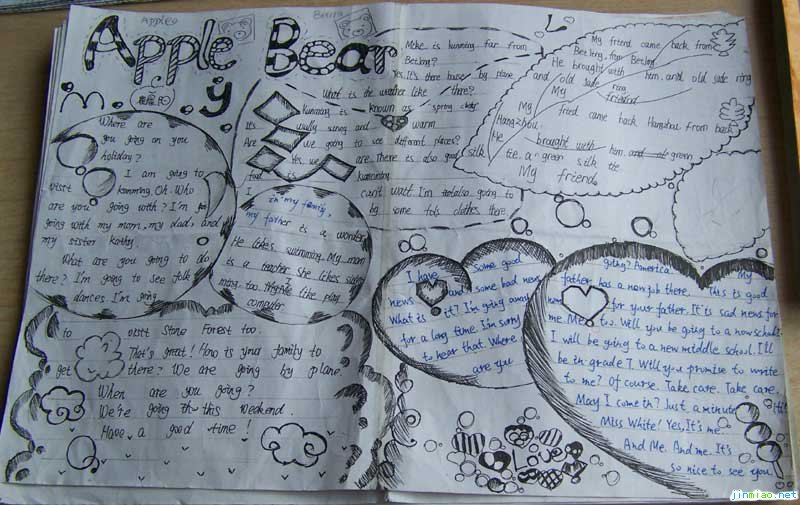 Apple
Apple Bear
y
Where are
you going on you
holiday?
I am going to
visit kunming. Oh. Who
are you going with? I'm
going with my mom, my dad, and
my sister Kathy.
What are you going to do
there? I'm going to see folk
dances. I'm going
to visit Stone Forest too.
That's great! How is your family to
get there? We are going by plane.
When are you going?
We're going this weekend.
Have a good time!
in my family,
my father is a worker
He likes swimming. My mom
is a teacher. She likes
ming too. like play
computer
is kunming far from
Beijing?
Yes. It's there hours by plane
What is the weather like there?
kunming is known as spring
It's sunny and warm
Are we going to see different places?
Yes we are. There is also good
food is
I can't wait. I'm going to
some clothes there
My friend came back from
Beijing from Beijing
He brought with him and old
and old ring
My friend
My fried came back Hangzhou from back
Hangzhou.
He brought with him and green
silk tie. a green silk tie
My friend.
I have some good
news and some bad news
What is it? I'm going away
for a long time. I'm sorry
to hear that. Where
are you
going? America. My
father has a new job there. This is good
news for your father. It's sad news for
me. Me too. Will you be going to a new school.
I will be going to a new middle school. I'll
be in grade 7. Will you promise to write
to me? Of course. Take care. Take care.
May I come in? Just a minute
Miss White! Yes, It's me
And Me. And me. It's
so nice to see you
Love
jinmiao.net